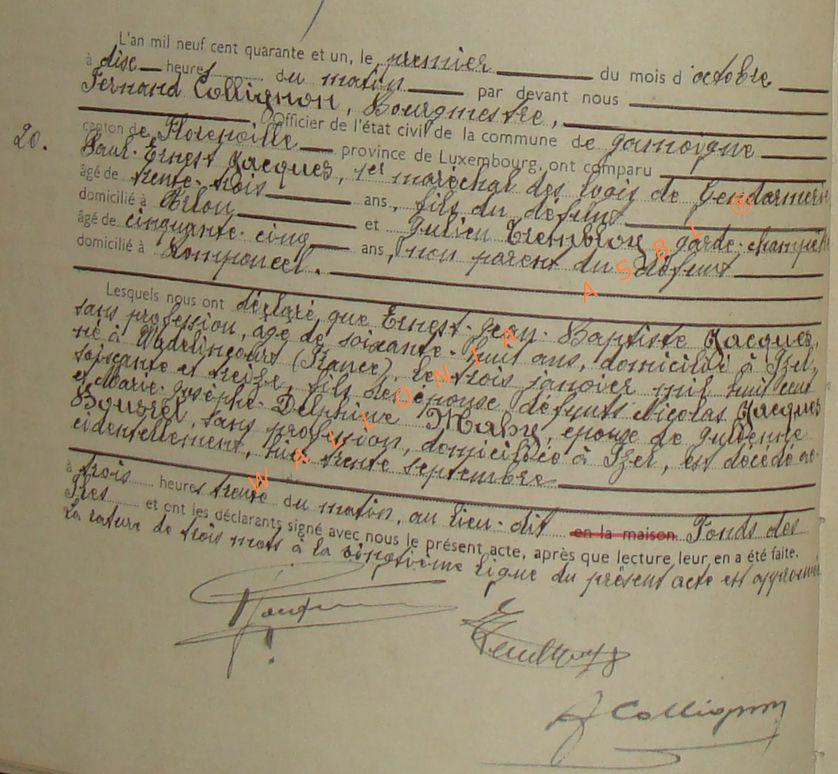 L'an mil neuf cent quarante et un, le premier du mois d'octobre
à dise heures du matin par devant nous
Fernand Collignon, Bourgmestre,
Officier de l'état civil de la commune de Jamoigne
20.
canton de Florenville province de Luxembourg, ont comparu
Paul-Ernest Jacques, 1er maréchal des logis de Gendarmerie
âgé de trente-trois ans, fils du défunt
domicilié à Arlon et Julien Tremblon garde-champêt
âgé de cinquante-cinq ans, non parent du défunt
domicilié à Romponcel.
Lesquels nous ont déclaré que Ernest-Jean-Baptiste Jacques,
sans profession, âgé de soixante-huit ans, domicilié à Izel,
né à (France), le trois janvier mil huit cent
soixante et treize, fils des défunts Nicolas Jacques
et Marie-Josèphe-Delphine épouse de
sans profession, domiciliée à Izel, est décédé ac-
cidentellement, hier trente septembre
à trois heures trente du matin, au lieu-dit en la maison Fonds des
Iles et ont les déclarants signé avec nous le présent acte, après que lecture leur en a été faite.
La rature de trois mots à la vingtième ligne du présent acte est approuvée
F Collignon
WALLONIA ASBL ®